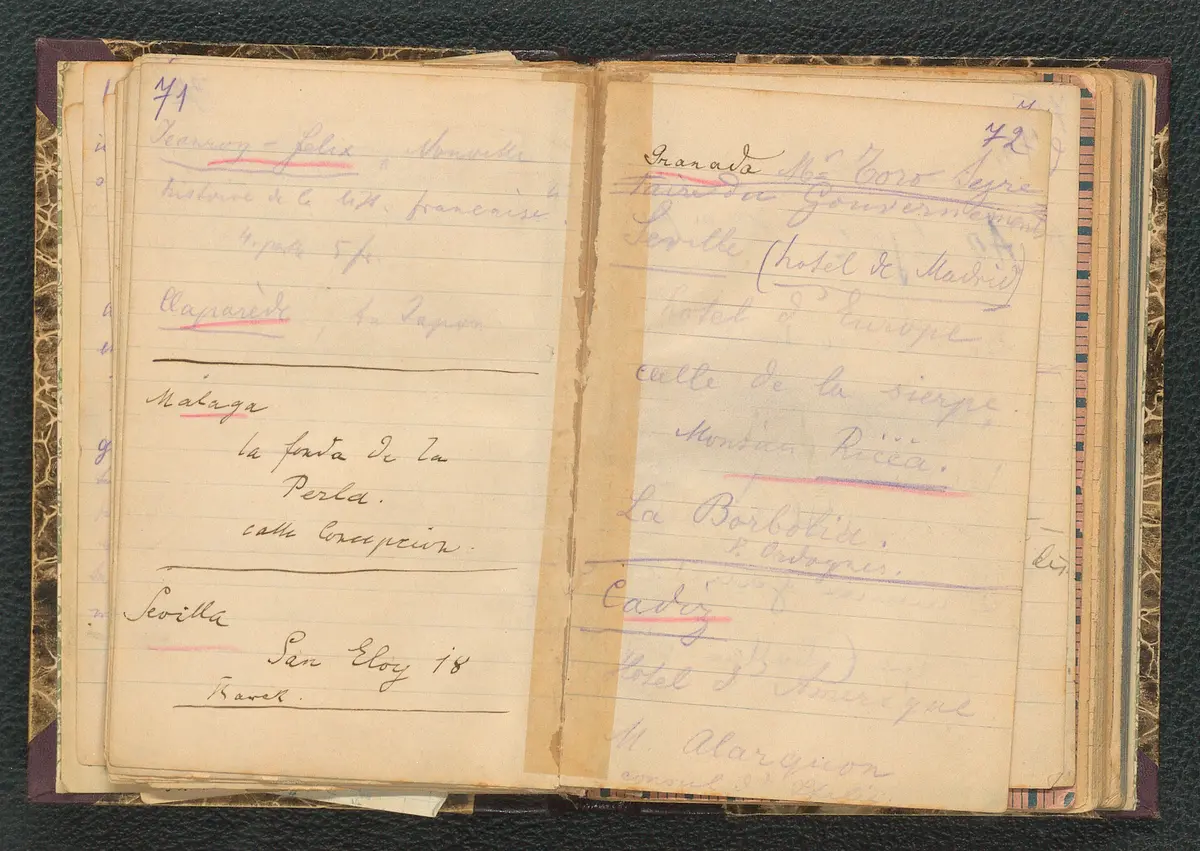 71
Jeanroy - Felix, Nouvelle
histoire de la litt. française
5 fr.
Claparède, Au Japon
Málaga
la fonda de la
Perla.
calle Concepcion.
Sevilla
San Eloy 18
72
Granada Toro
du Gouvernement
Seville (hotel de Madrid)
hotel d'Europe
calle de la sierpe.
Monsieur Ricca.
La Borbolla.
Cadiz
Hotel d'Amerique
M. Alarquon
consul d'